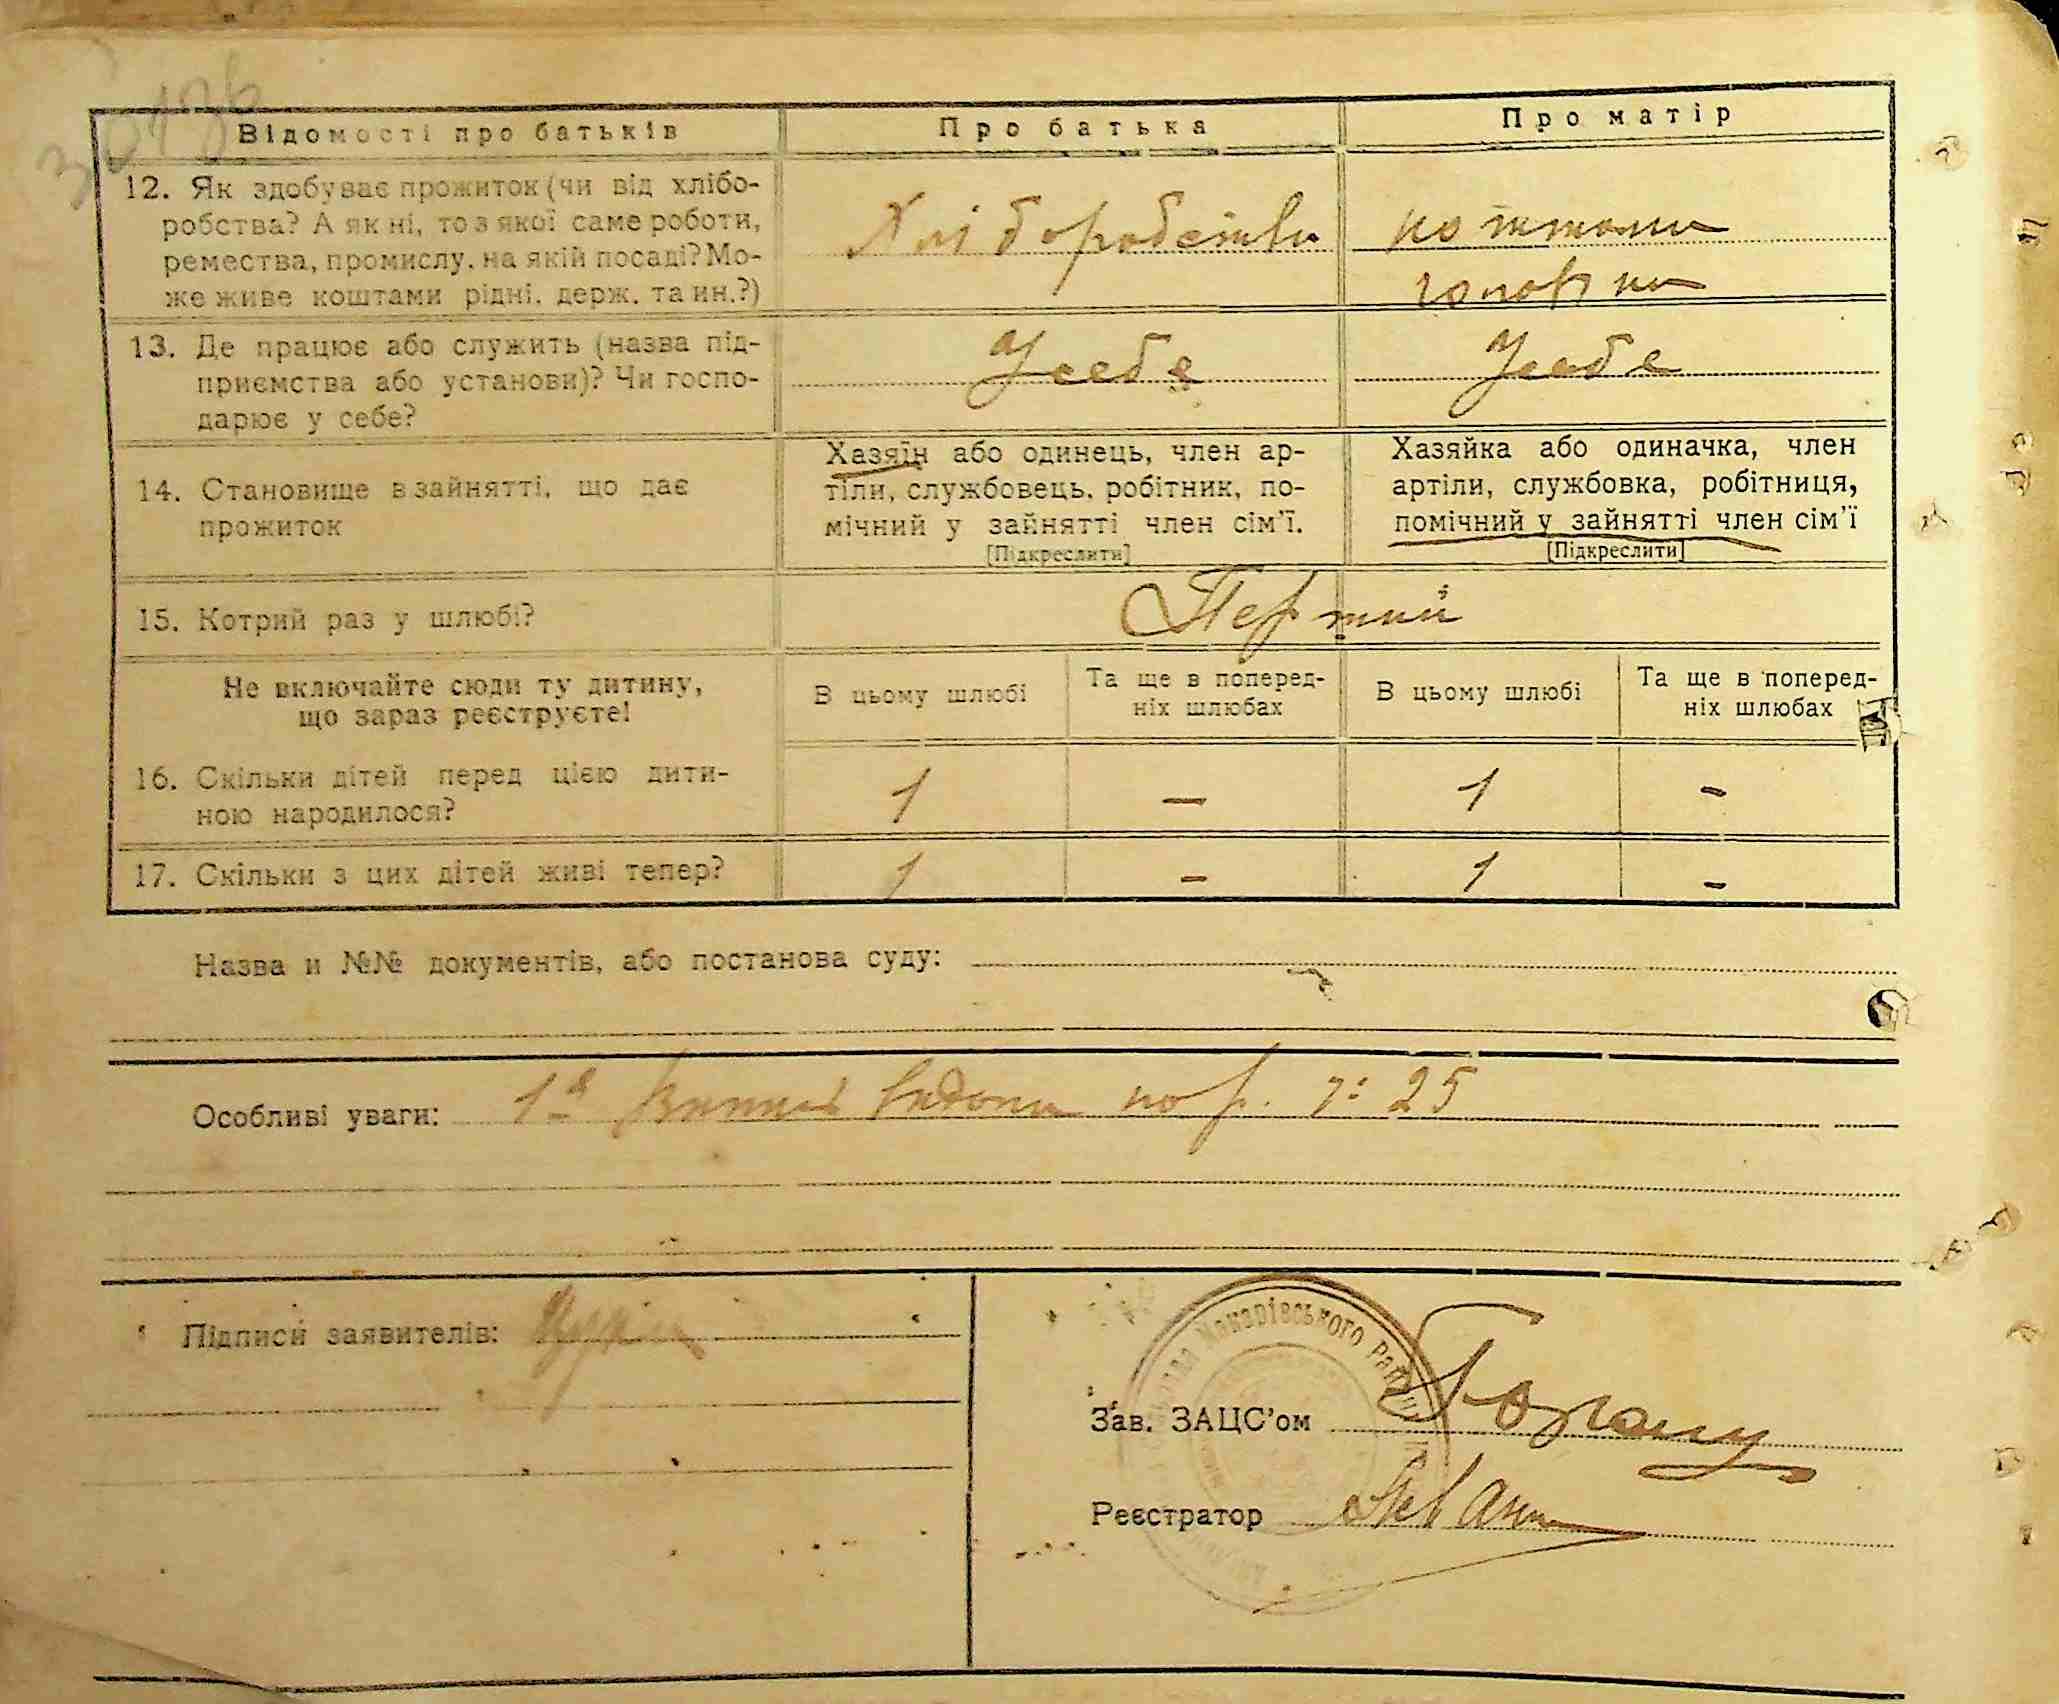 Відомості про батьків
Про батька
Про матір
12. Як здобуває прожиток (чи від хлібо-
робства? А як ні, то з якої саме роботи,
ремества, промислу, на якій посаді? Мо-
же живе коштами рідні, держ. та ин.?)
Хліборобство
коштами
чоловіка
13. Де працює або служить (назва під-
приємства або установи)? Чи госпо-
дарює у себе?
У себе
У себе
14. Становище в зайнятті, що дає
прожиток
Хазяїн або одинець, член ар-
тіли, службовець, робітник, по-
мічний у зайнятті член сім'ї.
[Підкреслити]
Хазяйка або одиначка, член
артіли, службовка, робітниця,
помічний у зайнятті член сім'ї
[Підкреслити]
15. Котрий раз у шлюбі?
Перший
Не включайте сюди ту дитину,
що зараз реєструєте!
В цьому шлюбі
Та ще в поперед-
ніх шлюбах
В цьому шлюбі
Та ще в поперед-
ніх шлюбах
16. Скільки дітей перед цією дити-
ною народилося?
1 – 1 –
17. Скільки з цих дітей живі тепер?
1 – 1 –
Назва и №№ документів, або постанова суду:
Особливі уваги: 25
Підписи заявителів:
Макарівського району
Зав. ЗАЦС'ом
Реєстратор